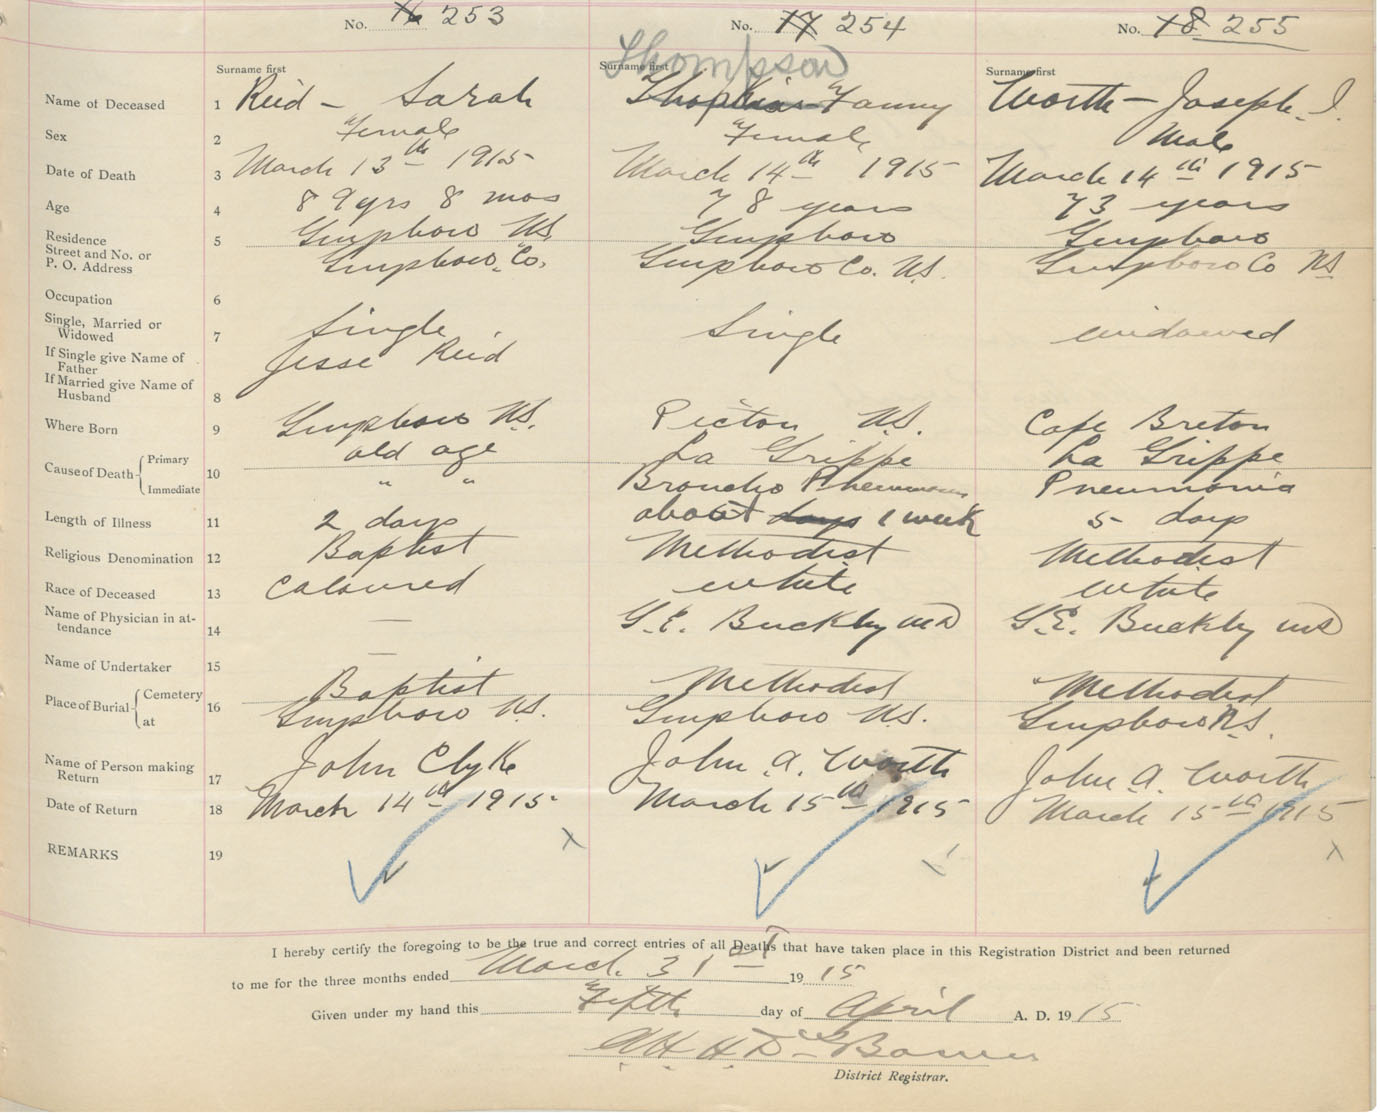 No. 16 253
No. 17 254
No. 18 255
Thompson
Surname first
Surname first
Surname first
Name of Deceased 1 Reid - Sarah Fanny Worth - Joseph. J.
Sex 2 Female Female Male
Date of Death 3 March 13th 1915 March 14th 1915 March 14th 1915
Age 4 89 yrs 8 mos 78 years 73 years
Residence 5 Guysboro NS. Guysboro Guysboro
Street and No. or
P. O. Address Guysboro. Co. Guysboro Co. N.S. Guysboro Co NS
Occupation 6
Single, Married or
Widowed 7 Single Single widowed
If Single give Name of
Father Jesse Reid
If Married give Name of
Husband 8
Where Born 9 Guysboro N.S. Pictou N.S. Cape Breton
Cause of Death Primary 10 old age La Grippe La Grippe
Immediate " " Broncho Pneumonia Pneumonia
Length of Illness 11 2 days about days 1 week 5 days
Religious Denomination 12 Baptist Methodist Methodist
Race of Deceased 13 Coloured white white
Name of Physician in at-
tendance 14 — G. E. Buckley MD G. E. Buckley MD
Name of Undertaker 15 —
Place of Burial Cemetery 16 Baptist Methodist Methodist
at Guysboro N.S. Guysboro N.S. Guysboro N.S.
Name of Person making
Return 17 John Clyke John. A. Worth John A. Worth
Date of Return 18 March 14th 1915. March 15th 1915 March 15th 1915
REMARKS 19
I hereby certify the foregoing to be the true and correct entries of all Deaths that have taken place in this Registration District and been returned
to me for the three months ended March 31st 1915
Given under my hand this Fifth day of April A. D. 1915
District Registrar.